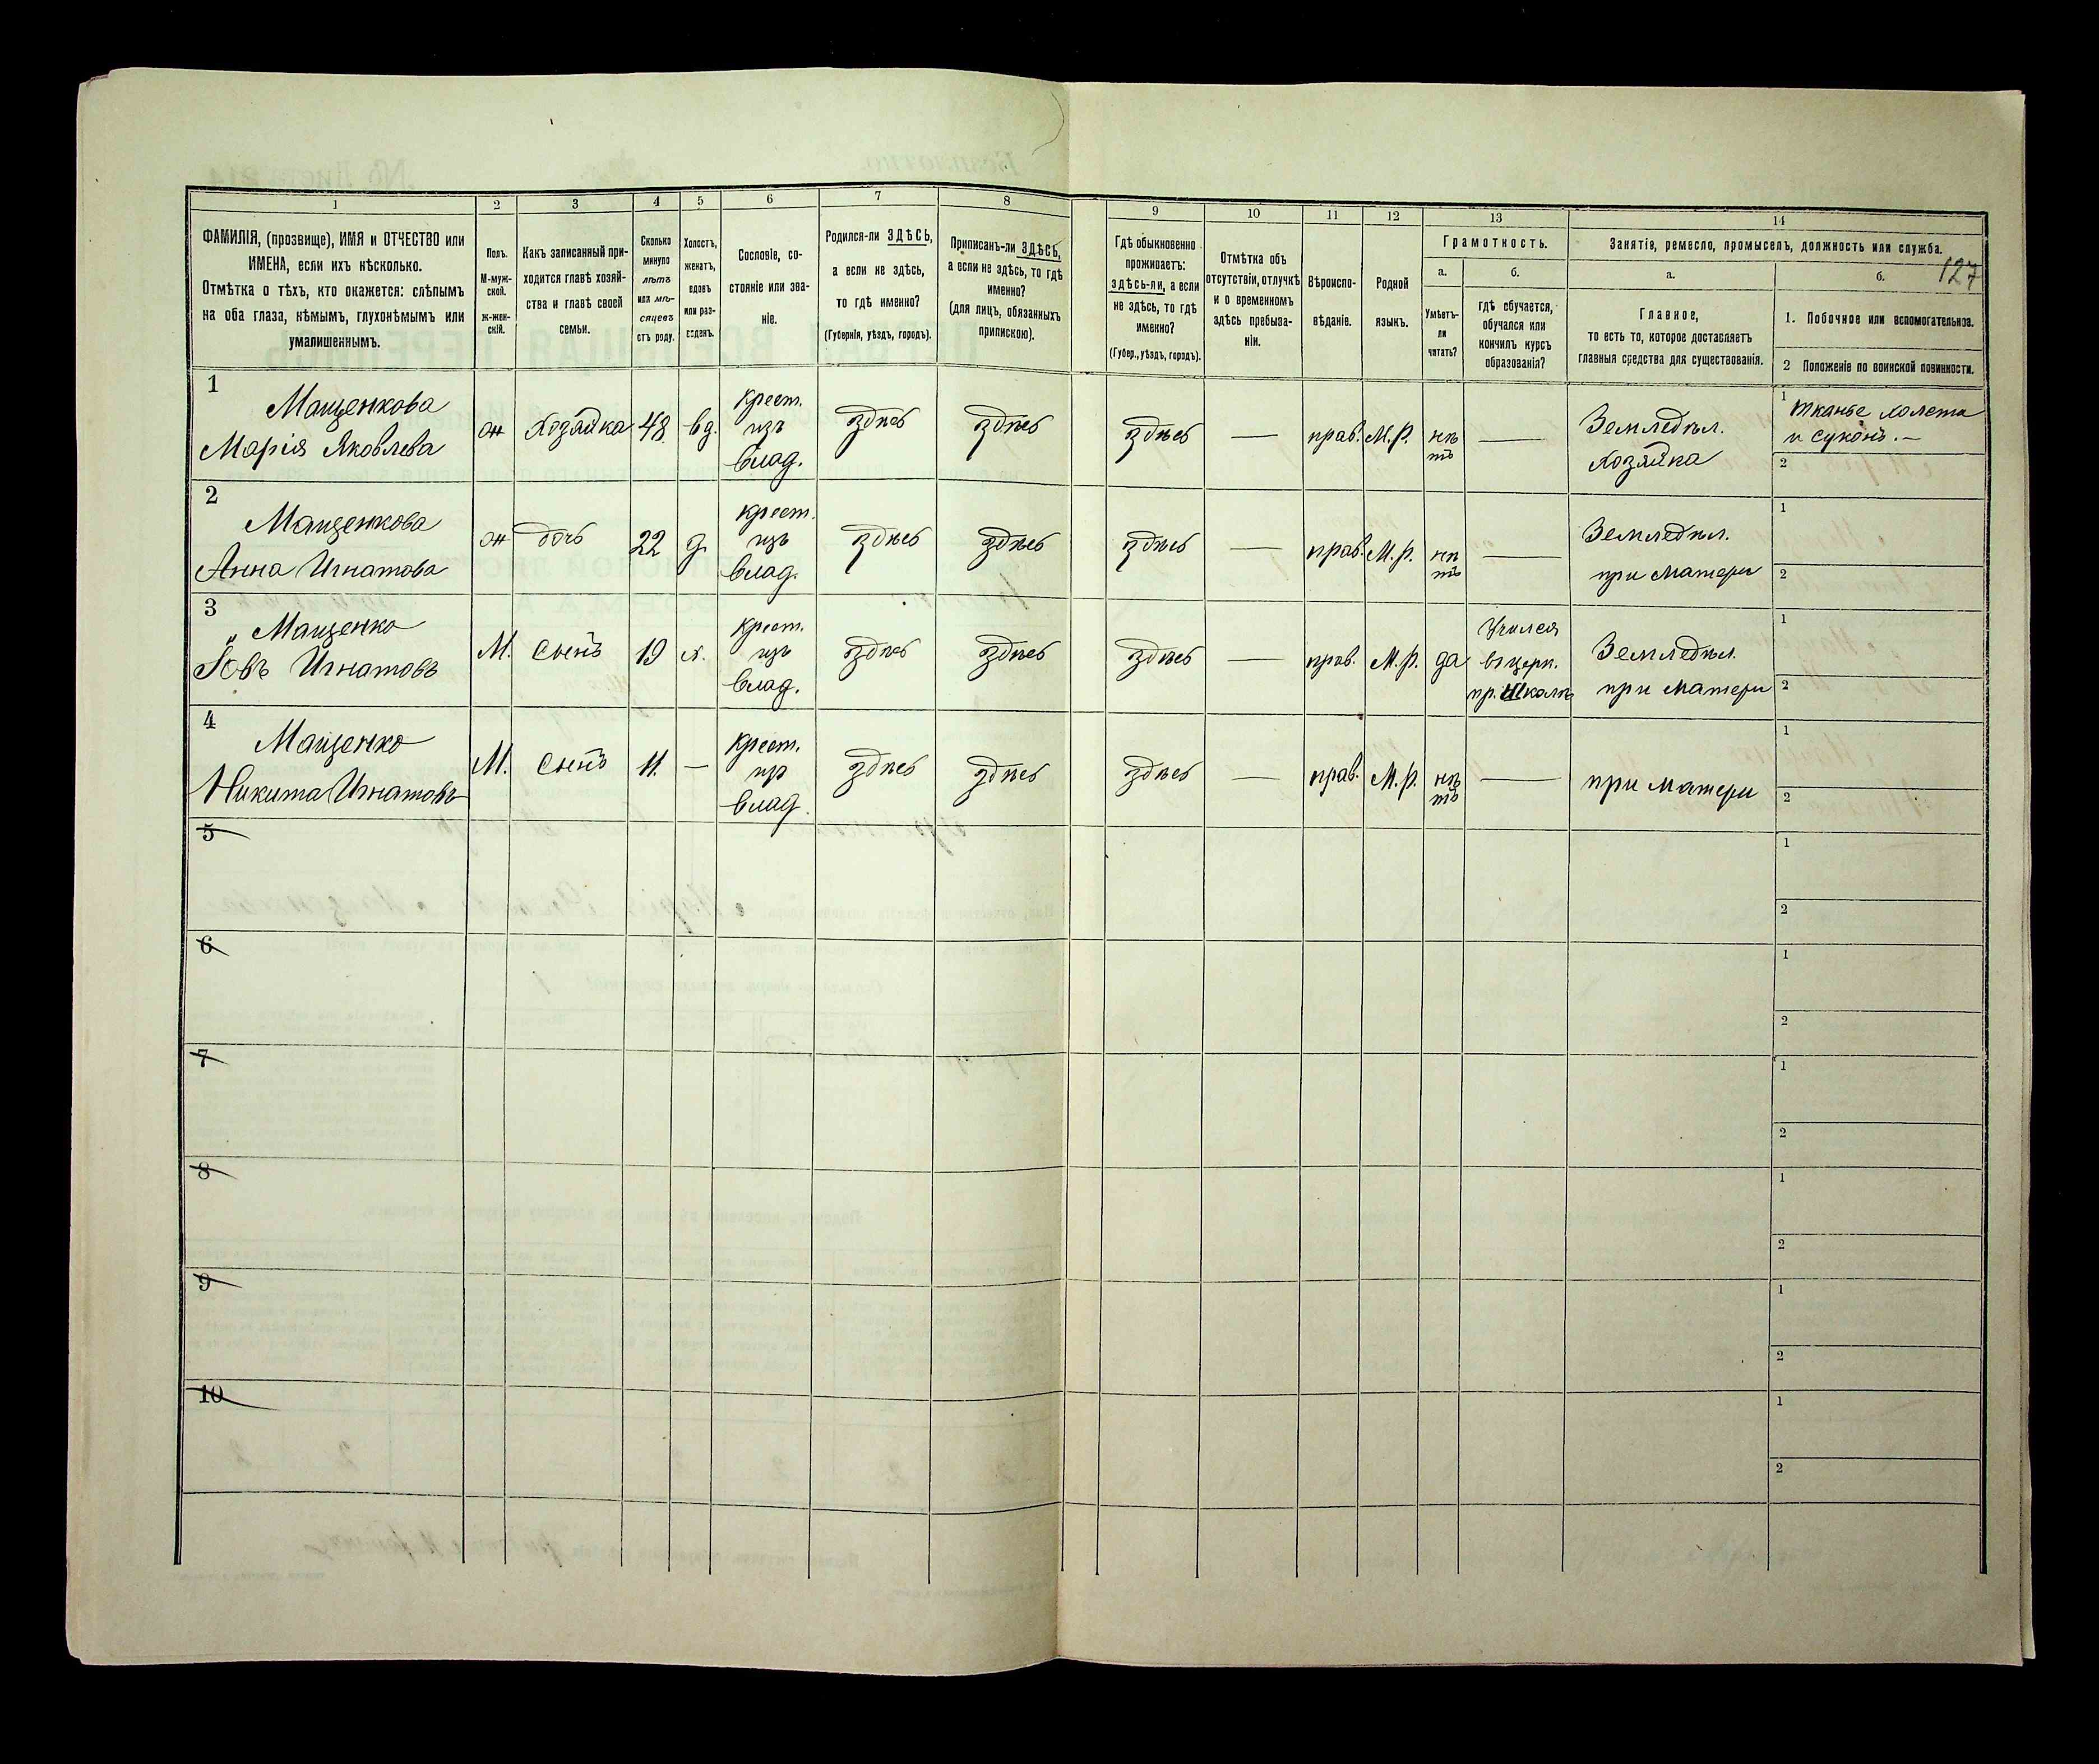 127
1
2
3
4
5
6
7
8
9
10
11
12
13
14
ФАМИЛІЯ, (прозвище), ИМЯ и ОТЧЕСТВО или
ИМЕНА, если ихъ нѣсколько.
Отмѣтка о тѣхъ, кто окажется: слѣпымъ
на оба глаза, нѣмымъ, глухонѣмымъ или
умалишеннымъ.
Полъ.
М-муж-
ской.
ж-жен-
скій.
Какъ записанный при-
ходится главѣ хозяй-
ства и главѣ своей
семьи.
Сколько
минуло
лѣтъ
или мѣ-
сяцевъ
отъ роду.
Холостъ,
женатъ,
вдовъ
или раз-
еденъ.
Сословіе, со-
стояніе или зва-
ніе.
Родился-ли ЗДѢСЬ,
а если не здѣсь,
то гдѣ именно?
(Губернія, уѣздъ, городъ).
Приписанъ-ли ЗДѢСЬ,
а если не здѣсь, то гдѣ
именно?
(для лицъ, обязанныхъ
припискою).
Гдѣ обыкновенно
проживаетъ:
здѣсь-ли, а если
не здѣсь, то гдѣ
именно?
(Губер., уѣздъ, городъ).
Отмѣтка объ
отсутствіи, отлучкѣ
и о временномъ
здѣсь пребыва-
ніи.
Вѣроиспо-
вѣданіе.
Родной
языкъ.
Грамотность.
а.
Умѣетъ-
ли
читать?
б.
гдѣ обучается,
обучался или
кончилъ курсъ
образованія?
Занятіе, ремесло, промыселъ, должность или служба.
а.
Главное,
то есть то, которое доставляетъ
главныя средства для существованія.
б.
1. Побочное или вспомогательное.
2 Положеніе по воинской повинности.
1
Мащенкова
Марія Яковлева
ж
Хозяйка
48
вд.
крест.
изъ
влад.
здѣсь
здѣсь
здѣсь
—
прав.
М.р.
нѣ
тъ
—
Земледѣл.
Хозяйка
1
тканье холста
и суконъ. —
2
2
Мащенкова
Анна Игнатова
ж
дочь
22
д.
крест.
изъ
влад.
здѣсь
здѣсь
здѣсь
—
прав.
М.р.
нѣ
тъ
—
Земледѣл.
при матери
1
2
3
Мащенко
Іовъ Игнатовъ
М.
сынъ
19
х.
крест.
изъ
влад.
здѣсь
здѣсь
здѣсь
—
прав.
М.р.
да
Учился
въ церк.
пр. школѣ
Земледѣл.
при матери
1
2
4
Мащенко
Никита Игнатовъ
М.
сынъ
11.
—
крест.
из
влад.
здѣсь
здѣсь
здѣсь
—
прав.
М.р.
нѣ
тъ
—
при матери
1
2
5
1
2
6
1
2
7
1
2
8
1
2
9
1
2
10
1
2